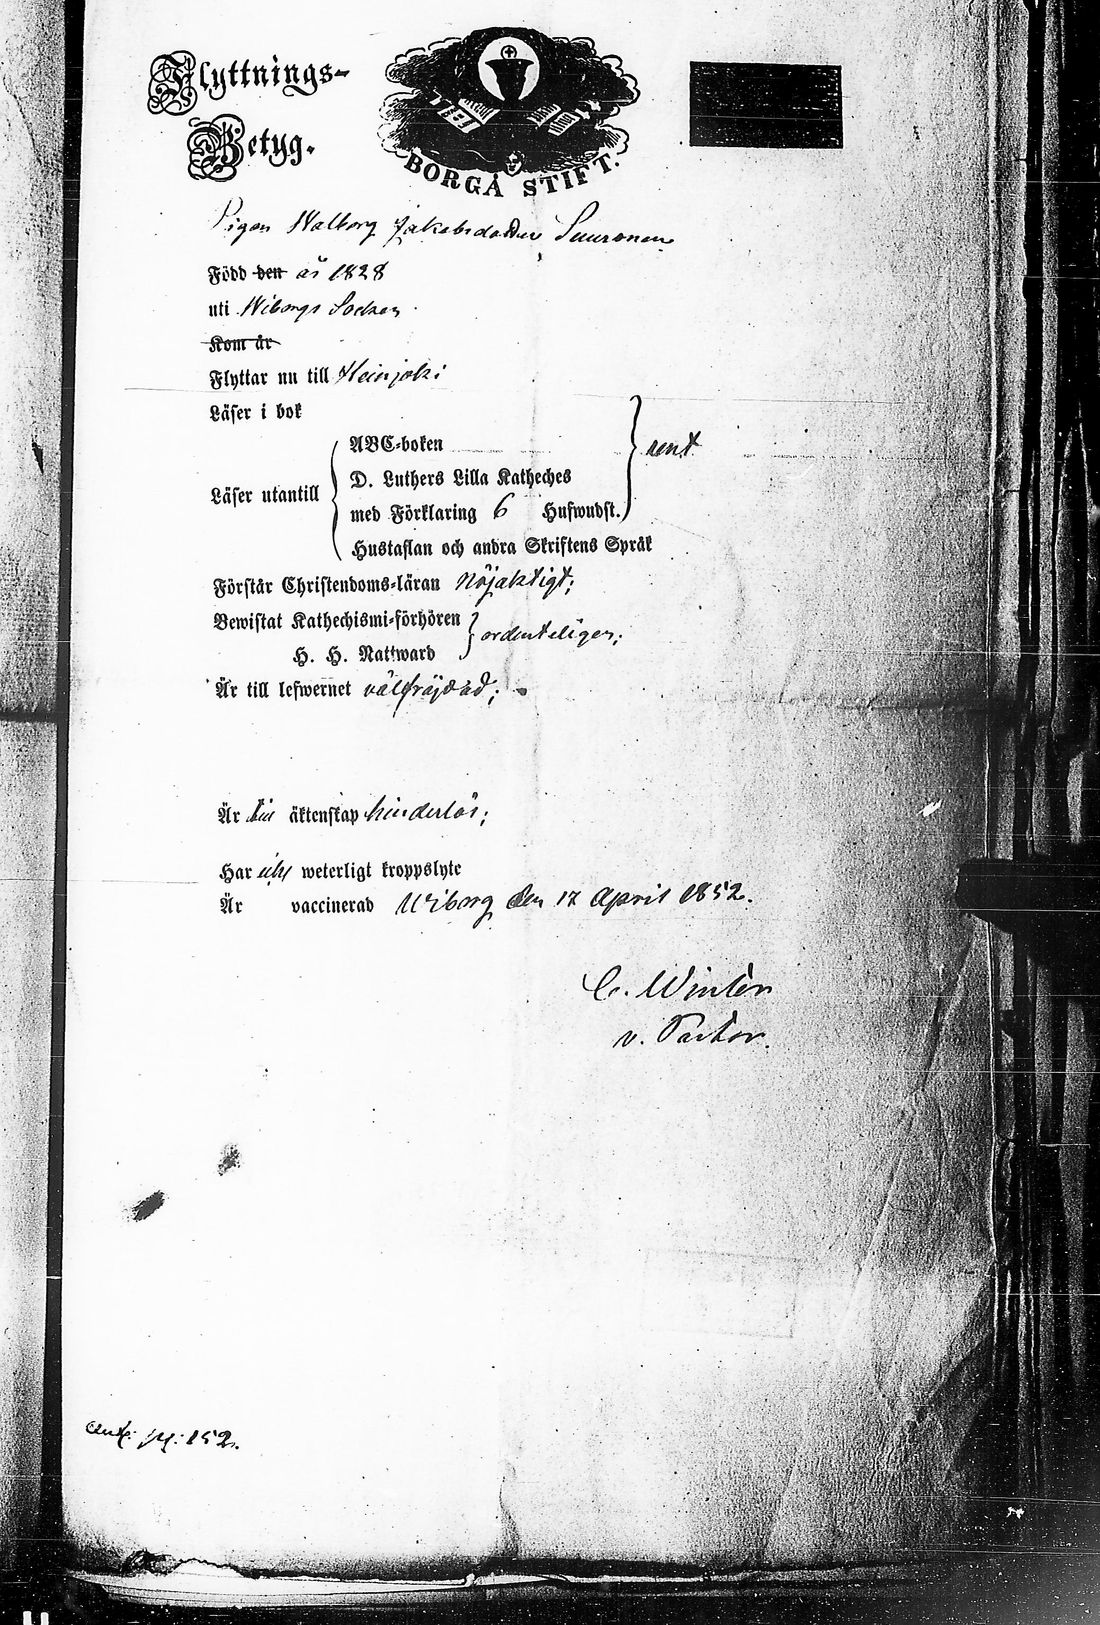 Flyttnings-
Betyg.
BORGÅ STIFT.
Pigan Walborg Jakobsdotter Suuronen
Född den år 1828
uti Wiborgs Socken
Kom år
Flyttar nu till Heinjoki
Läser i bok
ABC-boken
rent
D. Luthers Lilla Katheches
Läser utantill
med Förklaring 6 Hufwudst.
Hustaflan och andra Skriftens Språk
Förstår Christendoms-läran nöjaktigt;
Bewistat Kathechismi-förhören
ordenteligen;
H. H. Nattward
Är till lefwernet välfräjdad;
Är till äktenskap hinderlös;
Har icke weterligt kroppslyte
Är vaccinerad Wiborg den 17 April 1852.
C. Winter
v. Pastor.